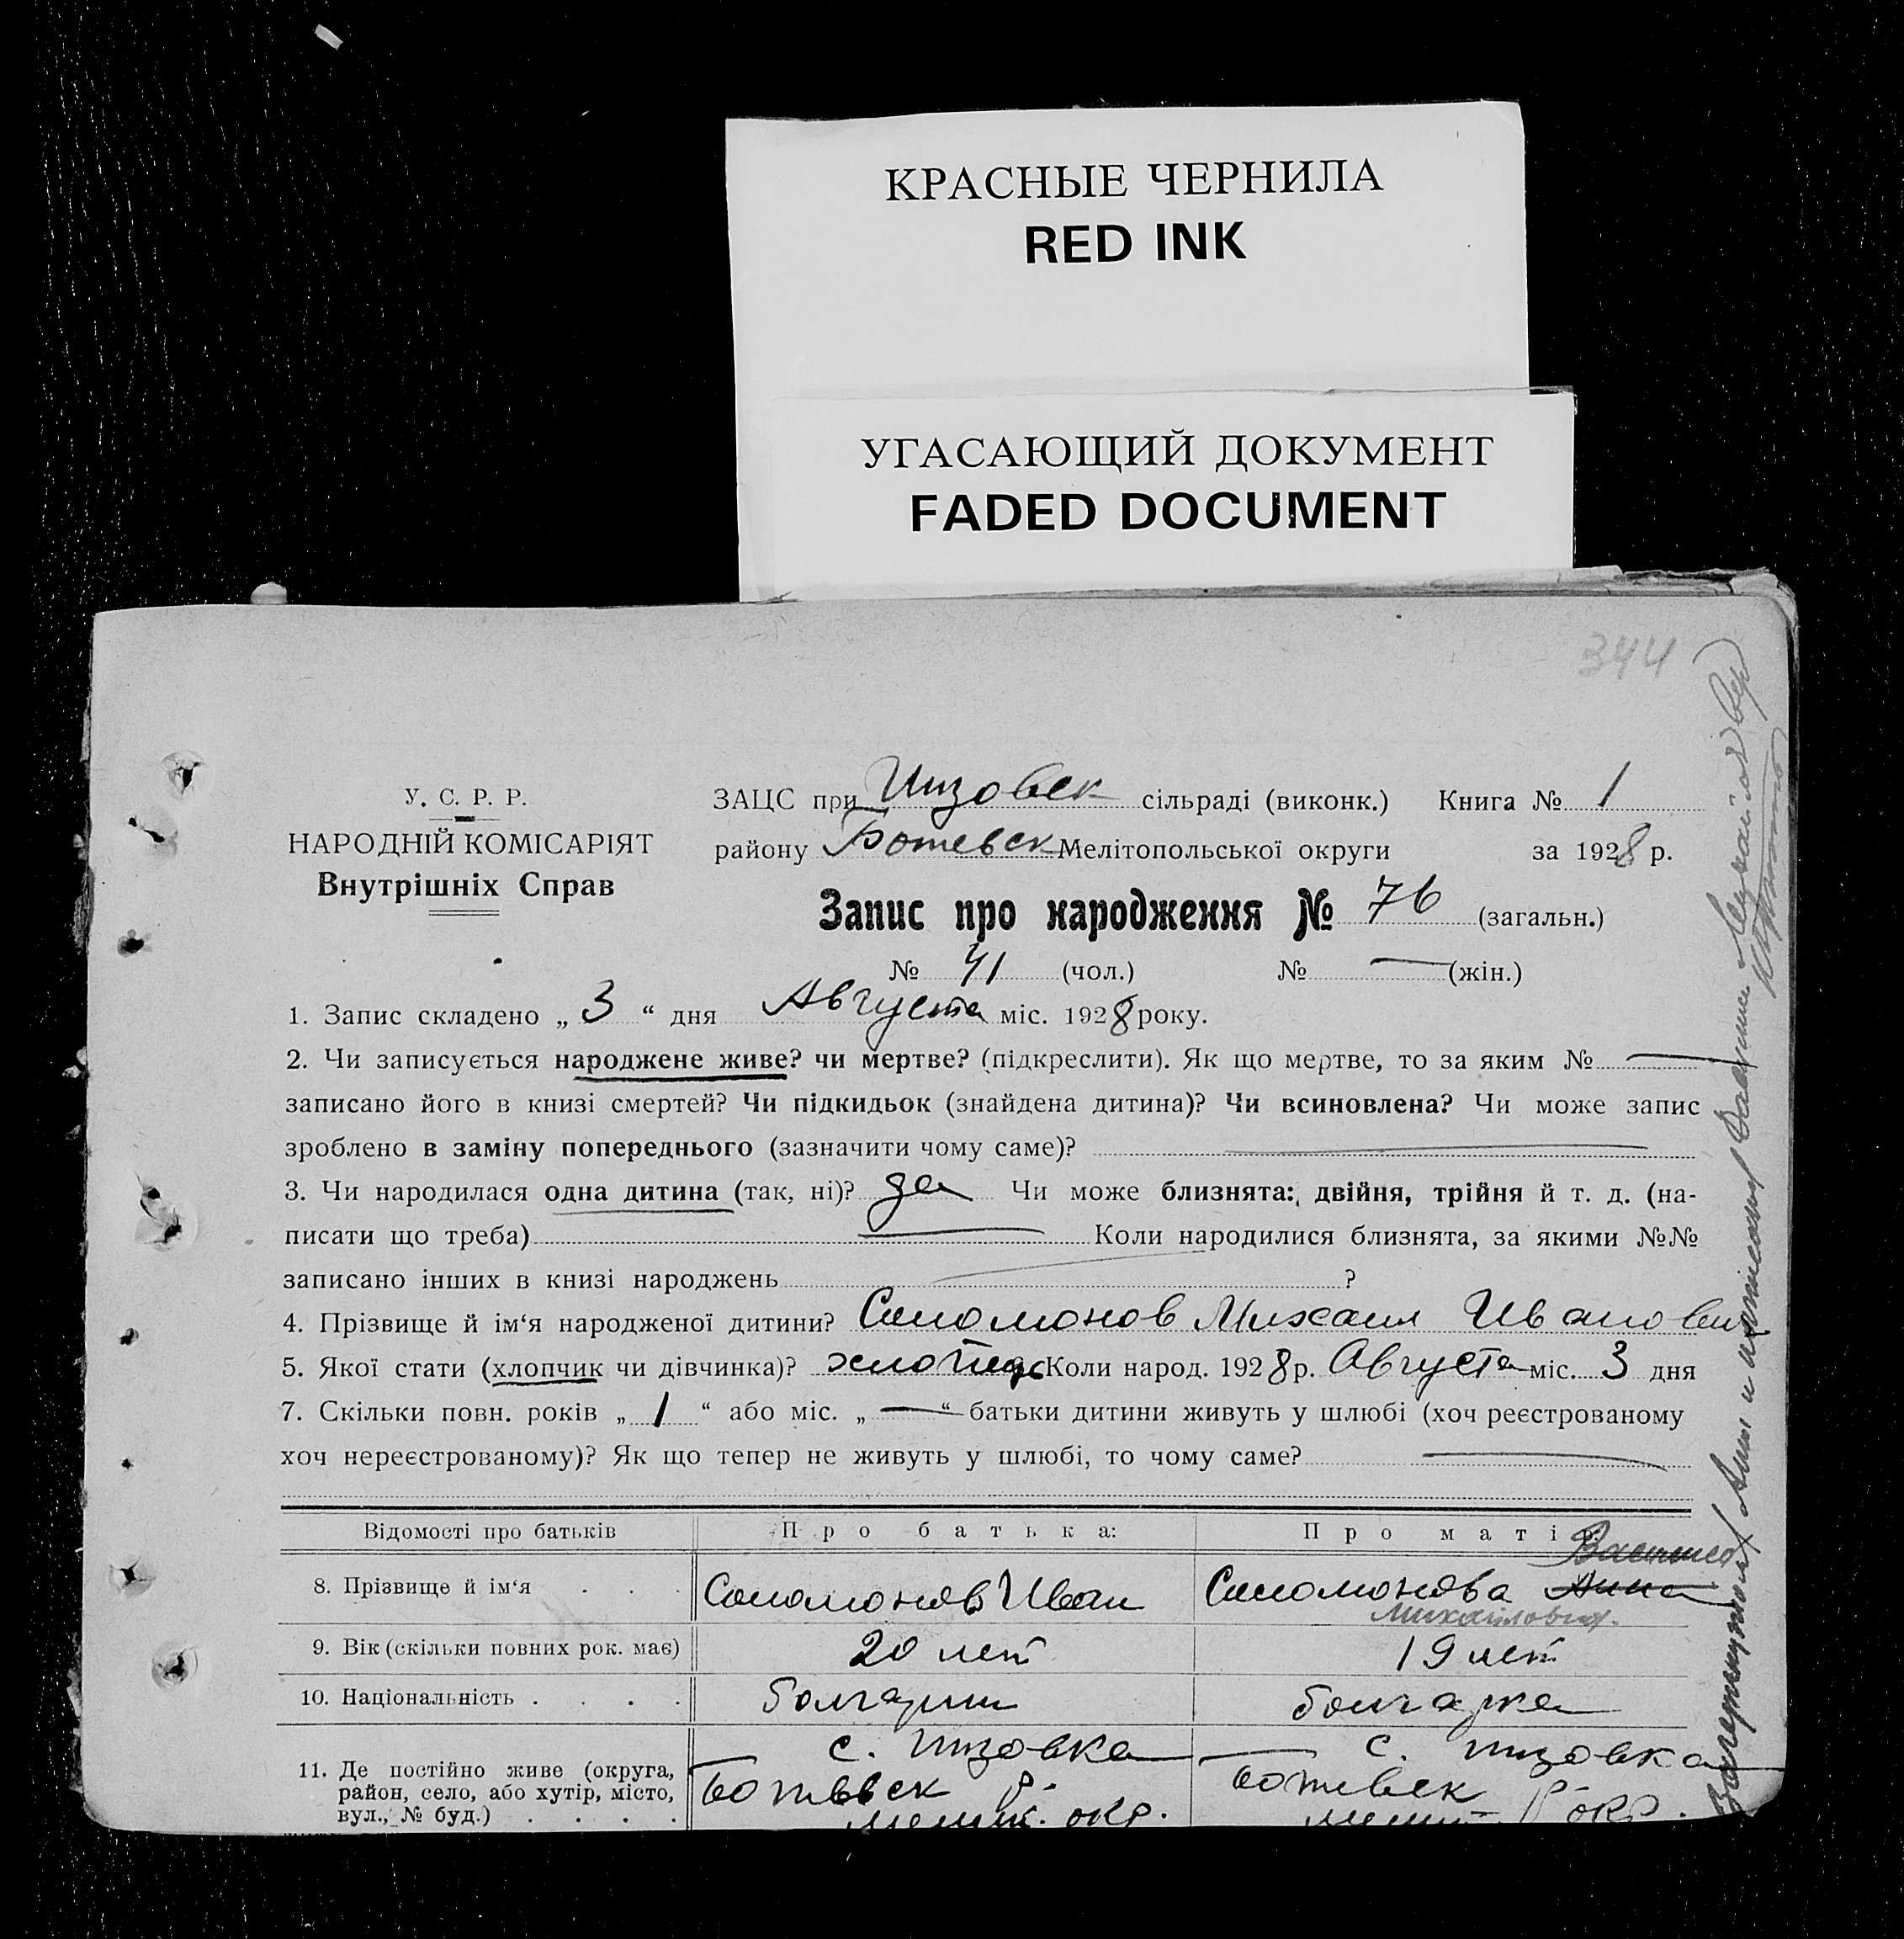 КРАСНЫЕ ЧЕРНИЛА
RED INK
УГАСАЮЩИЙ ДОКУМЕНТ
FADED DOCUMENT
344
У. С. Р. Р.
НАРОДНІЙ КОМІСАРІЯТ
Внутрішніх Справ
ЗАЦС при Инзовск сільраді (виконк.) Книга № 1
району Ботевск Мелітопольської округи за 1928 р.
Запис про народження № 76 (загальн.)
№ 41 (чол.) № — (жін.)
1. Запис складено „ 3 “ дня Августа міс. 1928 року.
2. Чи записується народжене живе? чи мертве? (підкреслити). Як що мертве, то за яким № —
записано його в книзі смертей? Чи підкидьок (знайдена дитина)? Чи всиновлена? Чи може запис
зроблено в заміну попереднього (зазначити чому саме)? —
3. Чи народилася одна дитина (так, ні)? да Чи може близнята: двійня, трійня й т. д. (на-
писати що треба) — Коли народилися близнята, за якими №№
записано інших в книзі народжень — ?
4. Прізвище й ім‘я народженої дитини? Соломонов Михаил Иванович
5. Якої стати (хлопчик чи дівчинка)? хлопець Коли народ. 1928 р. Августа міс. 3 дня
7. Скільки повн. років „ 1 “ або міс. „ — “ батьки дитини живуть у шлюбі (хоч реєстрованому
хоч нереєстрованому)? Як що тепер не живуть у шлюбі, то чому саме? —
Відомості про батьків Про батька: Про матір:
8. Прізвище й ім‘я . . . Соломонов Иван Соломонова Анна
Михайловна
9. Вік (скільки повних рок. має) 20 лет 19 лет
10. Національність . . . . болгарин болгарка
11. Де постійно живе (округа, с. Инзовка с. Инзовка
район, село, або хутір, місто, Ботевск р. Ботевск р
вул., № буд.) . . . . мелит. окр. мелит. окр.